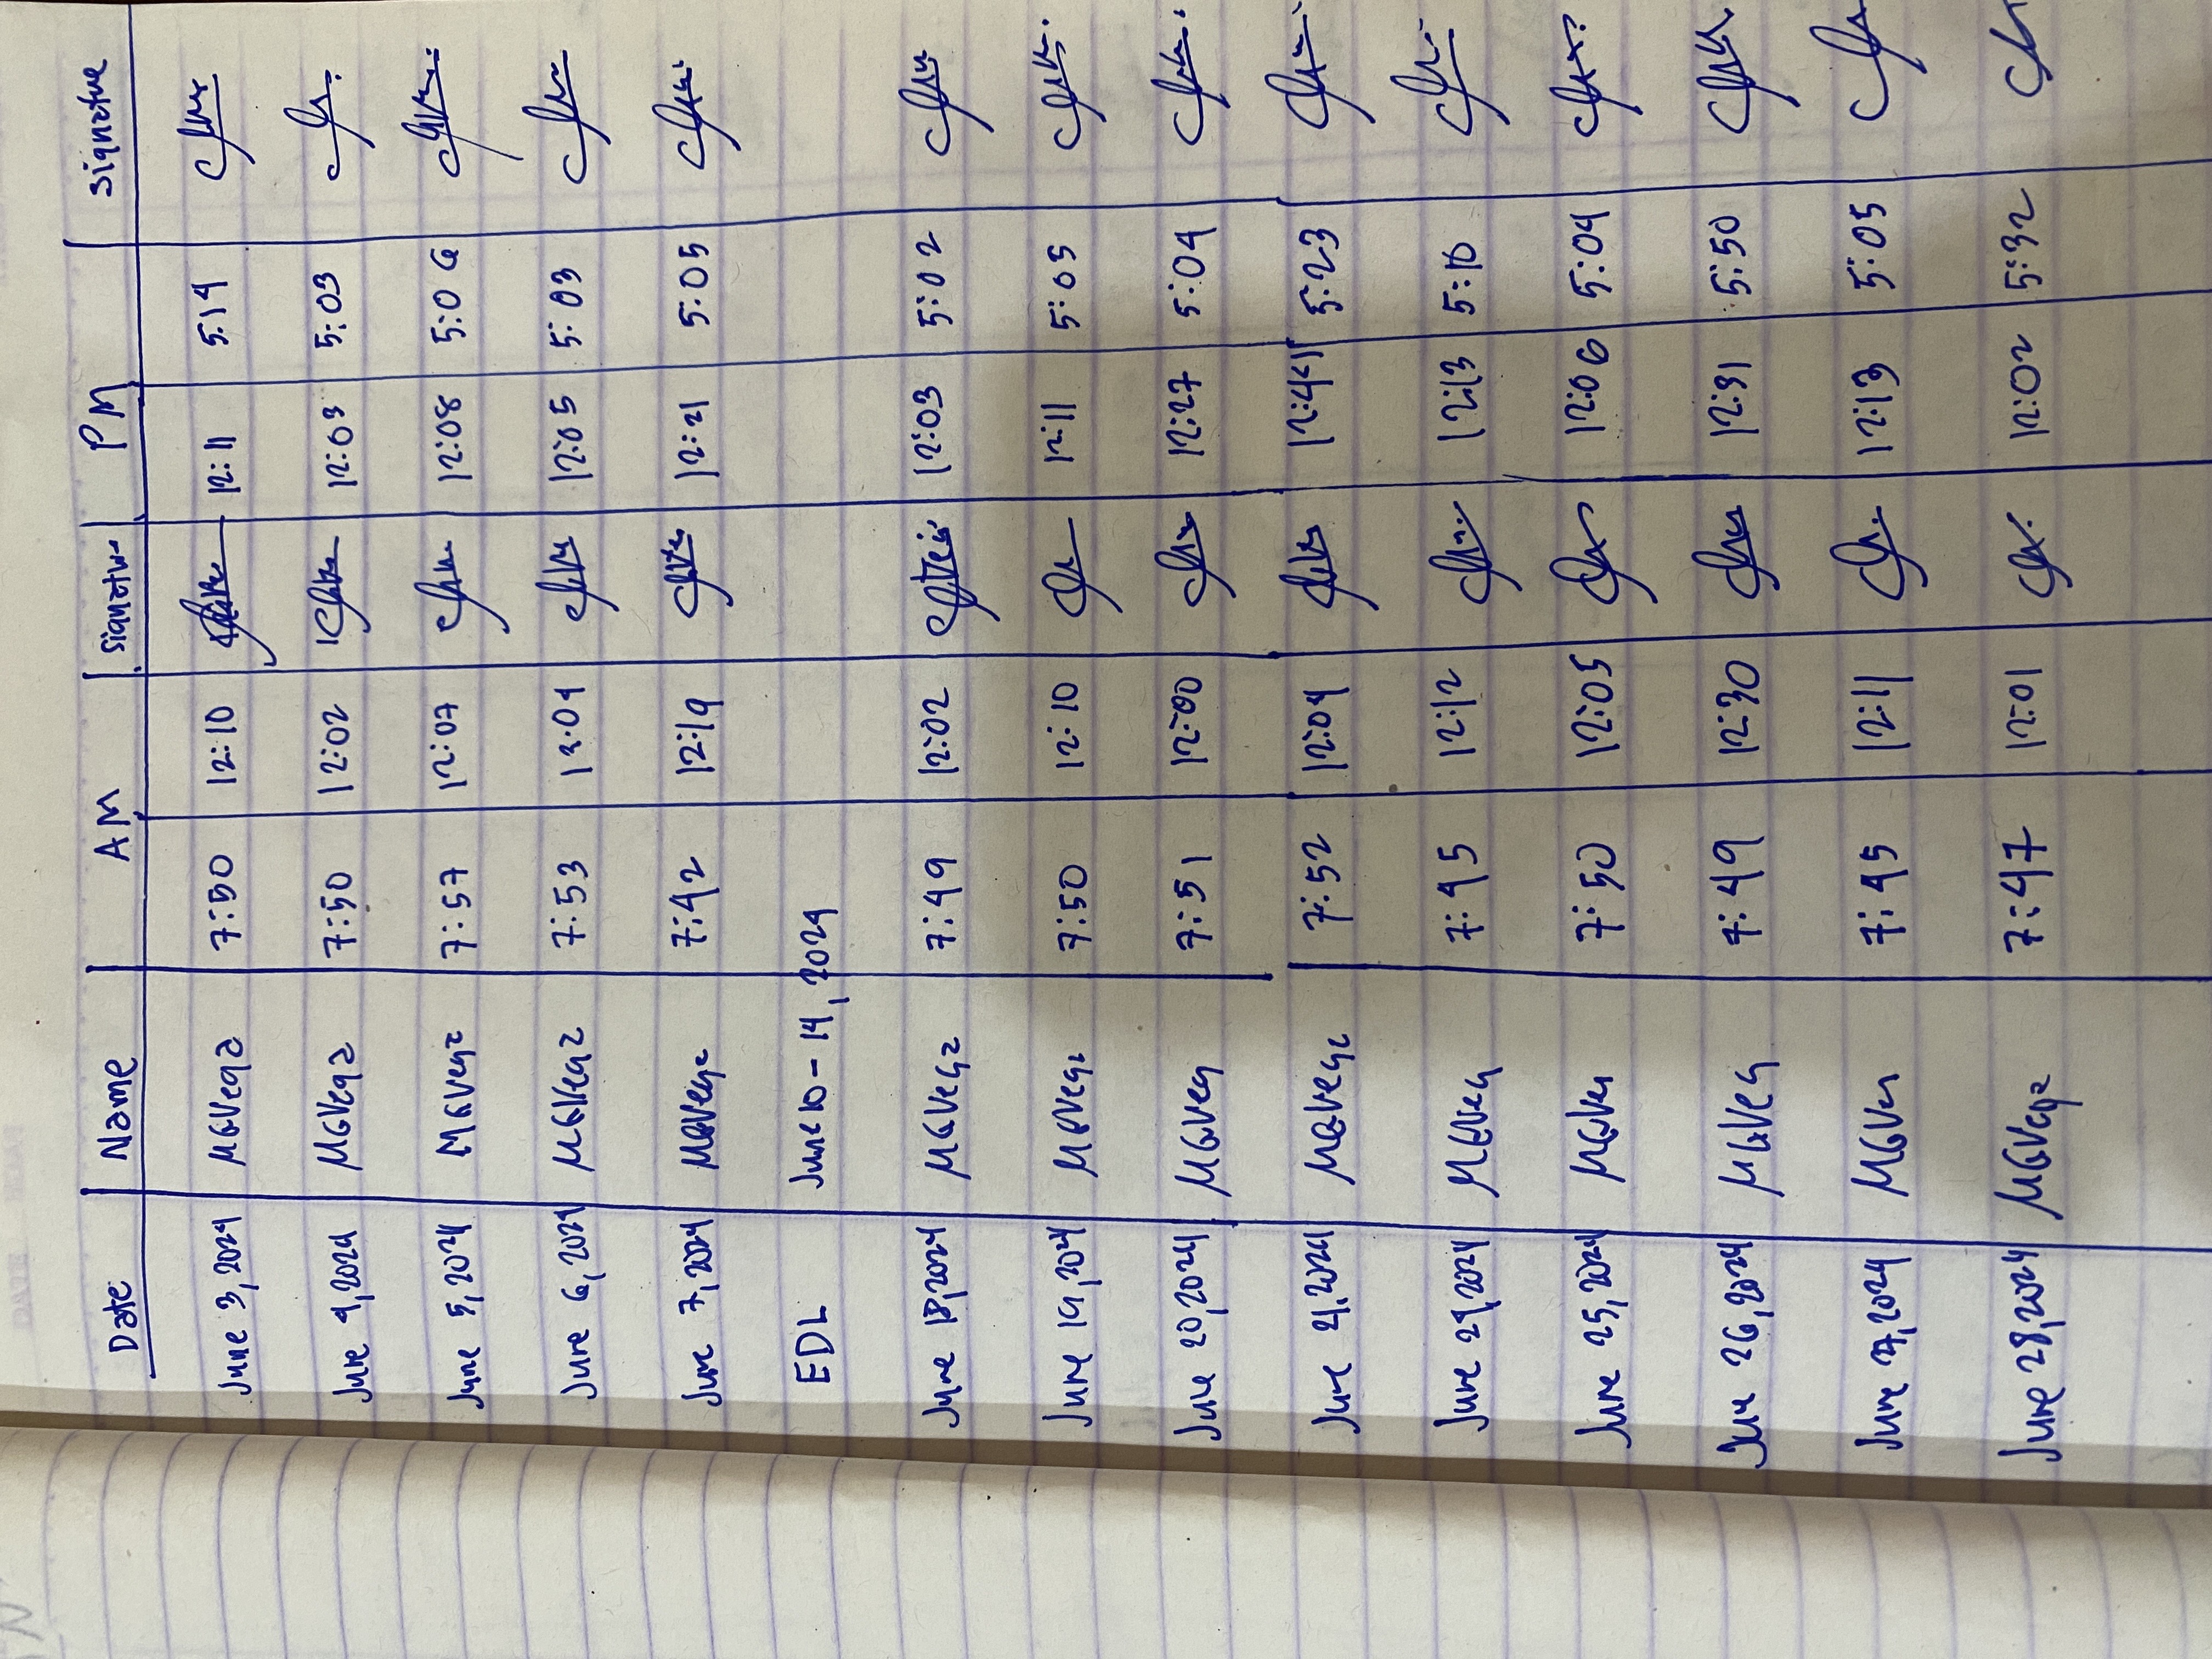 Date Name AM Signature PM Signature
June 3, 2024 MGVega 7:50 12:10 12:11 5:14
June 4, 2024 MGVega 7:50 12:02 12:03 5:03
June 5, 2024 MGVega 7:57 12:07 12:08 5:06
June 6, 2024 MGVega 7:53 12:04 12:05 5:03
June 7, 2024 MGVega 7:42 12:19 12:21 5:05
EDL June 10 - 14, 2024
June 18, 2024 MGVega 7:49 12:02 12:03 5:02
June 19, 2024 MGVega 7:50 12:10 12:11 5:05
June 20, 2024 MGVeg 7:51 12:00 12:27 5:04
June 21, 2024 MGVega 7:52 12:04 5:23
June 24, 2024 MGVeg 7:45 12:12 12:13 5:10
June 25, 2024 MGVeg 7:50 12:05 12:06 5:04
June 26, 2024 MGVeg 7:49 12:30 12:31 5:50
June 27, 2024 MGVeg 7:45 12:11 12:13 5:05
June 28, 2024 MGVega 7:47 12:01 12:02 5:32